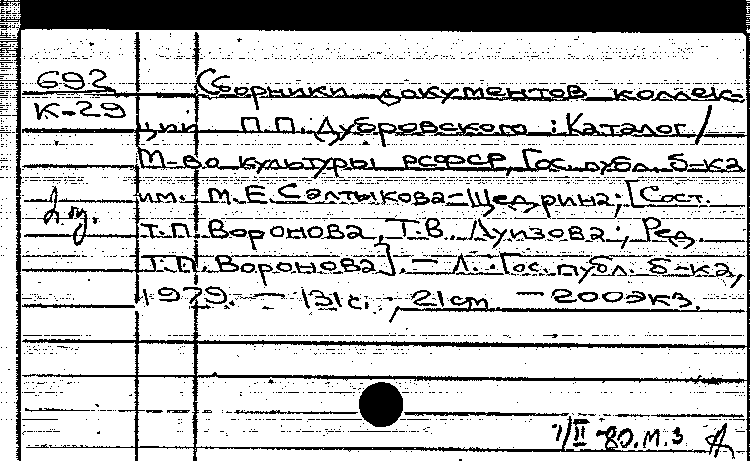 692
К-29
Сборники документов коллек-
ции П.П. Дубровского : Каталог /
М-во культуры РСФСР, Гос. публ. б-ка
им. М.Е. Салтыкова-Щедрина; [Сост.
Т.П. Воронова, Т.В. Луизова; Ред.
Т.П. Воронова]. — Л.: Гос. публ. б-ка,
1979. — 131 с., 21 cm — 200 экз.
2 оу.
1/II-80. М.З